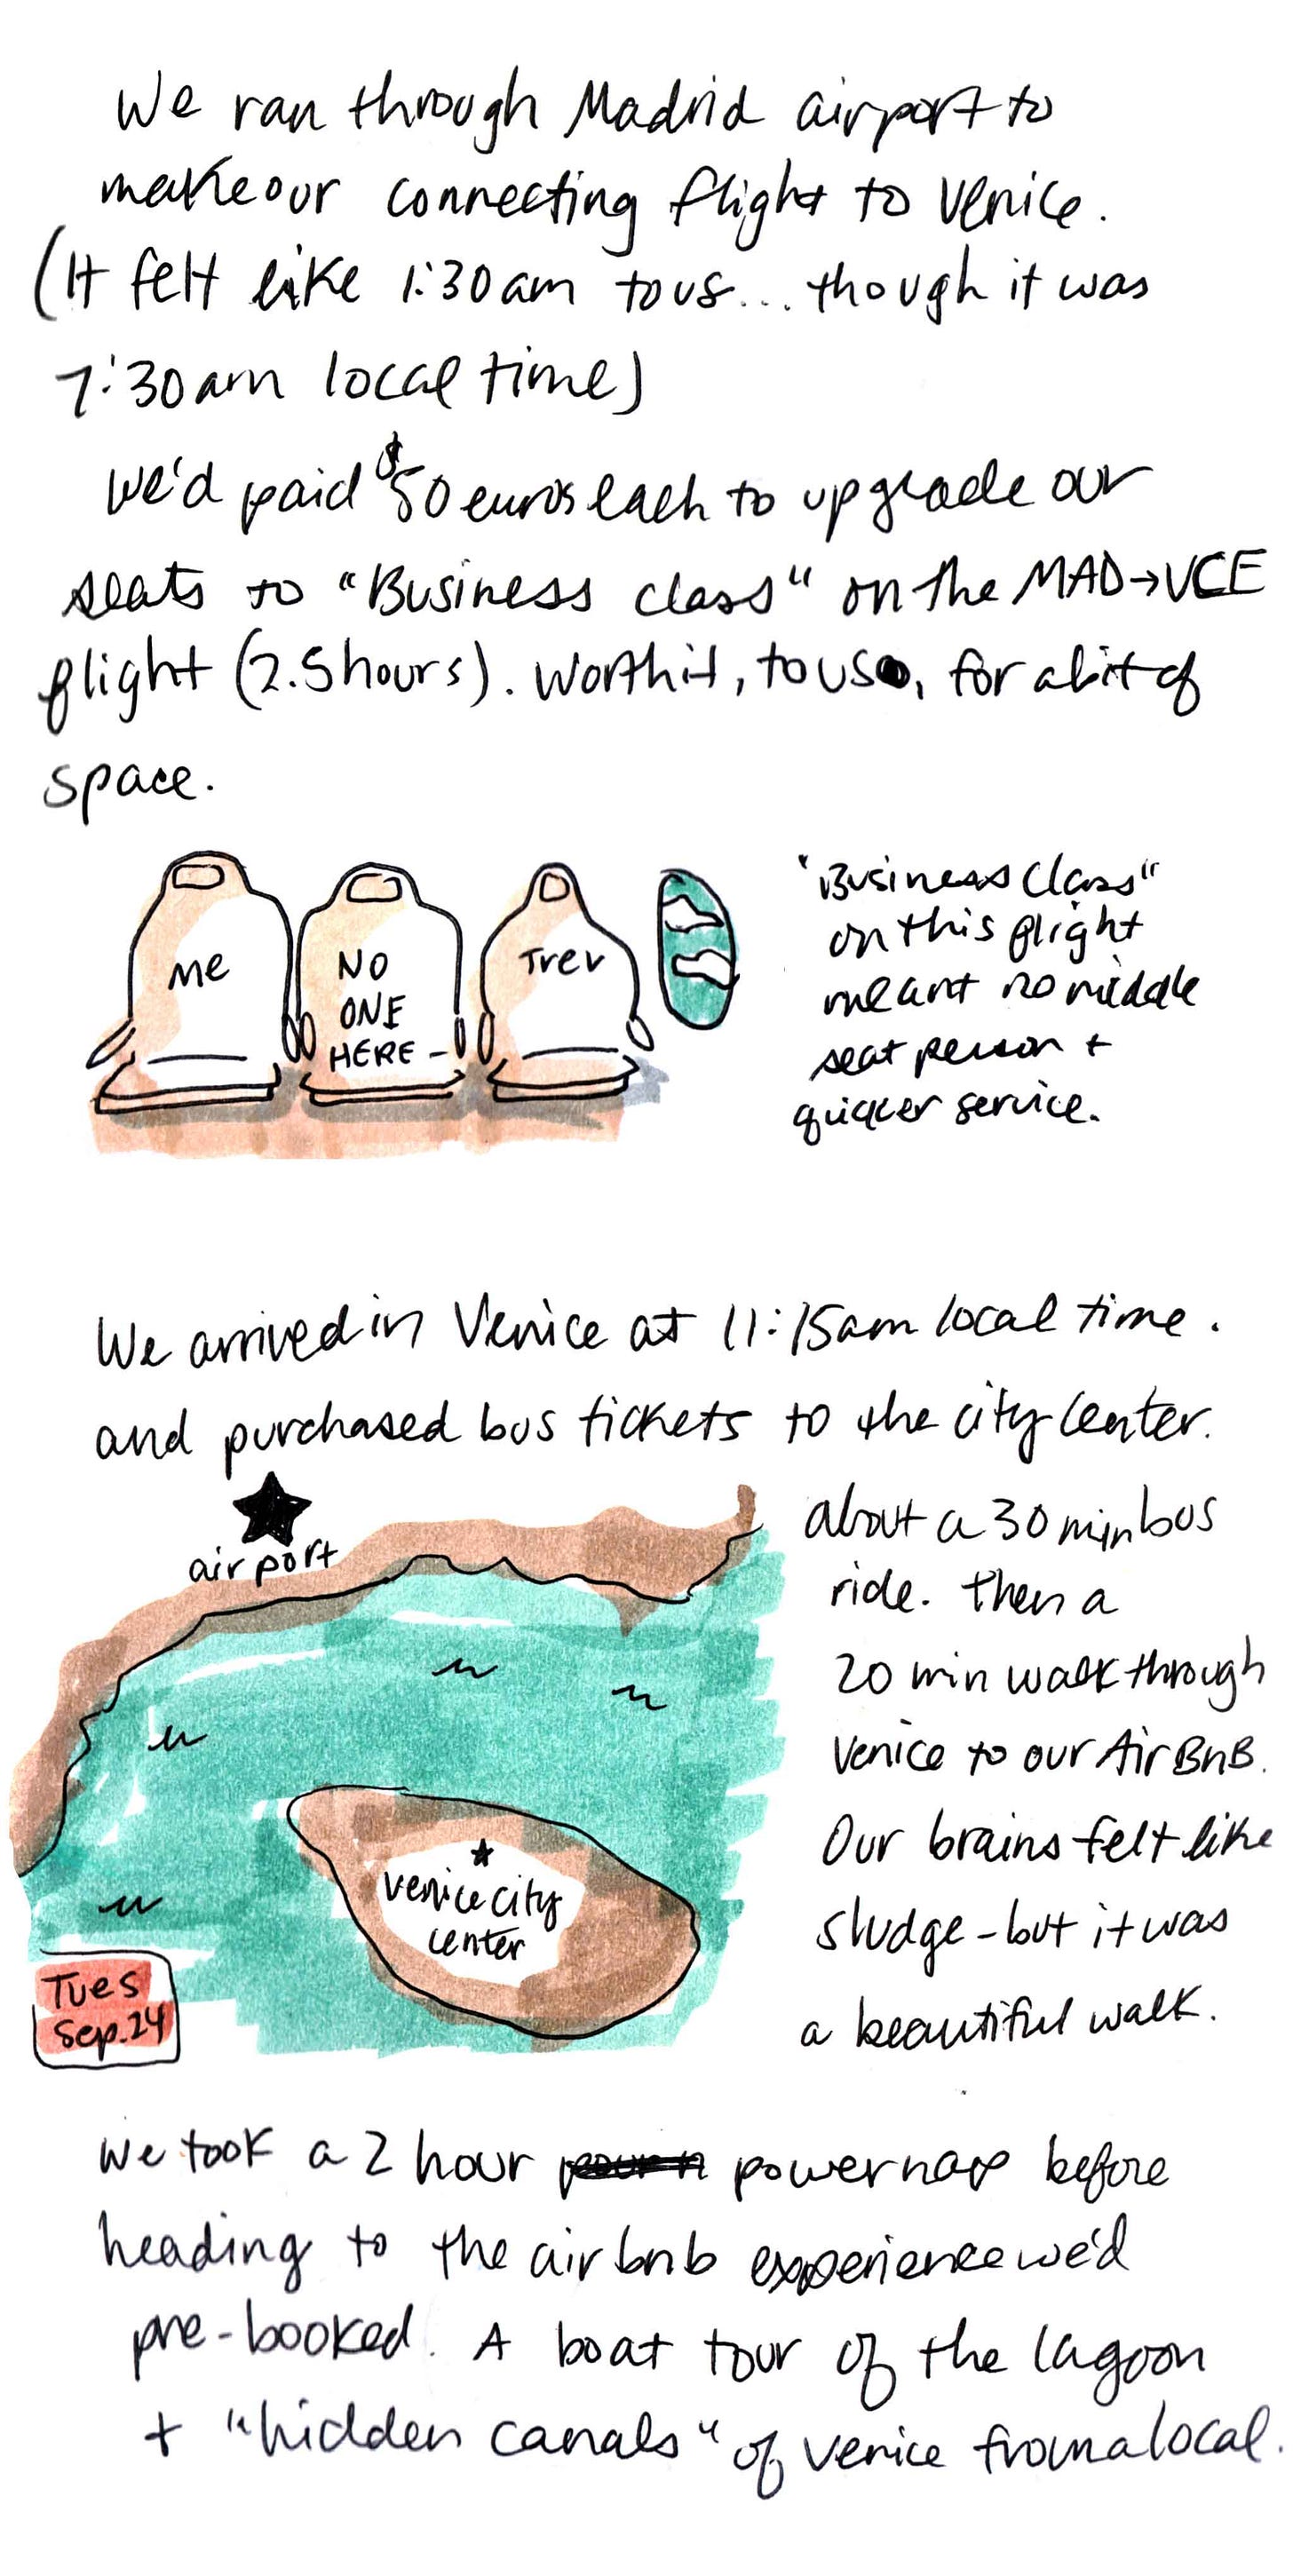 We ran through Madrid airport to
make our connecting flight to Venice.
(It felt like 1:30am to us... though it was
7:30am local time)
We'd paid $50 euros each to upgrade our
seats to "Business class" on the MAD→VCE
flight (2.5 hours). Worth it, to us, for a bit of
space.
Me
NO
ONE
HERE -
Trev
"Business Class"
on this flight
meant no middle
seat person +
quicker service.
We arrived in Venice at 11:15am local time.
and purchased bus tickets to the city center.
airport
about a 30 min bus
ride. then a
20 min walk through
Venice to our AirBnB.
Our brains felt like
sludge - but it was
a beautiful walk.
Venice city
center
Tues
Sep. 24
We took a 2 hour power nap before
heading to the airbnb experience we'd
pre-booked. A boat tour of the lagoon
+ "hidden canals" of Venice from a local.